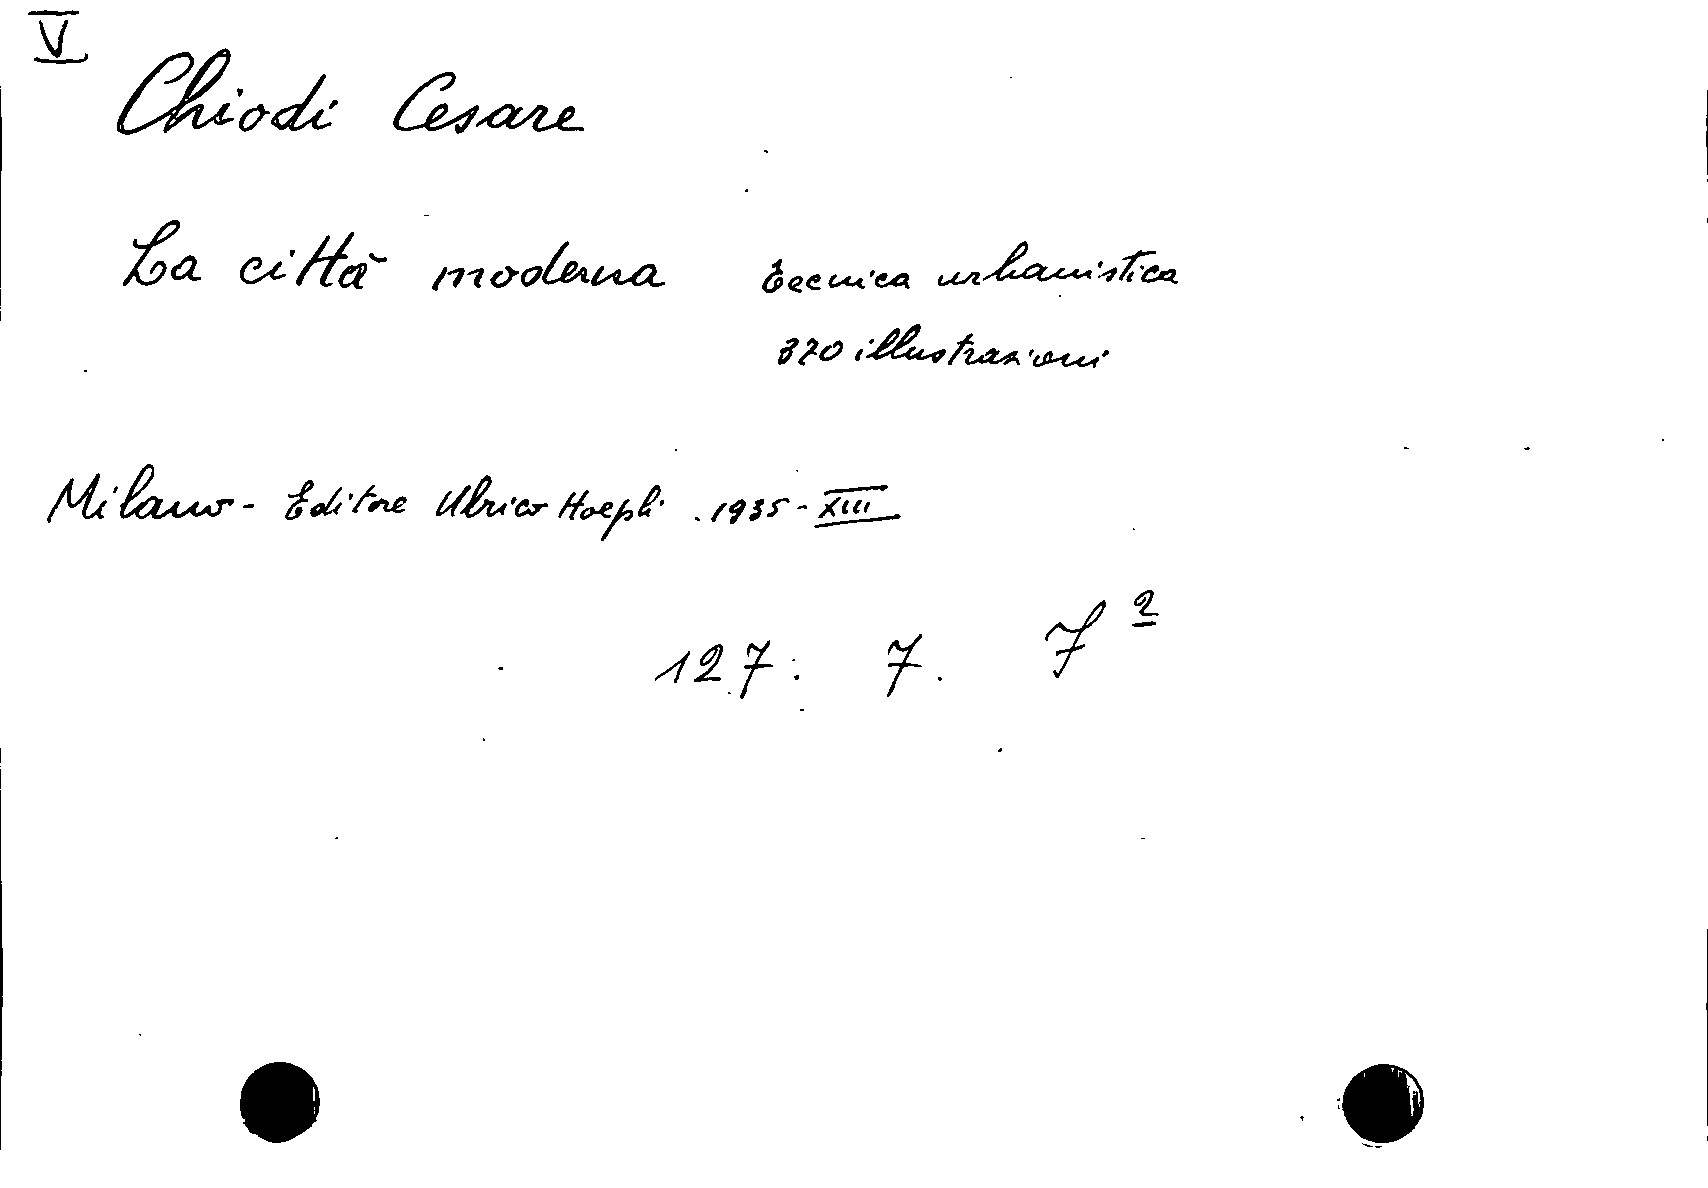 V
Chiodi Cesare
La città moderna tecnica urbanistica
370 illustrazioni
Milano - Editore Ulrico Hoepli . 1935 - XIII
127 : 7 . 7 2